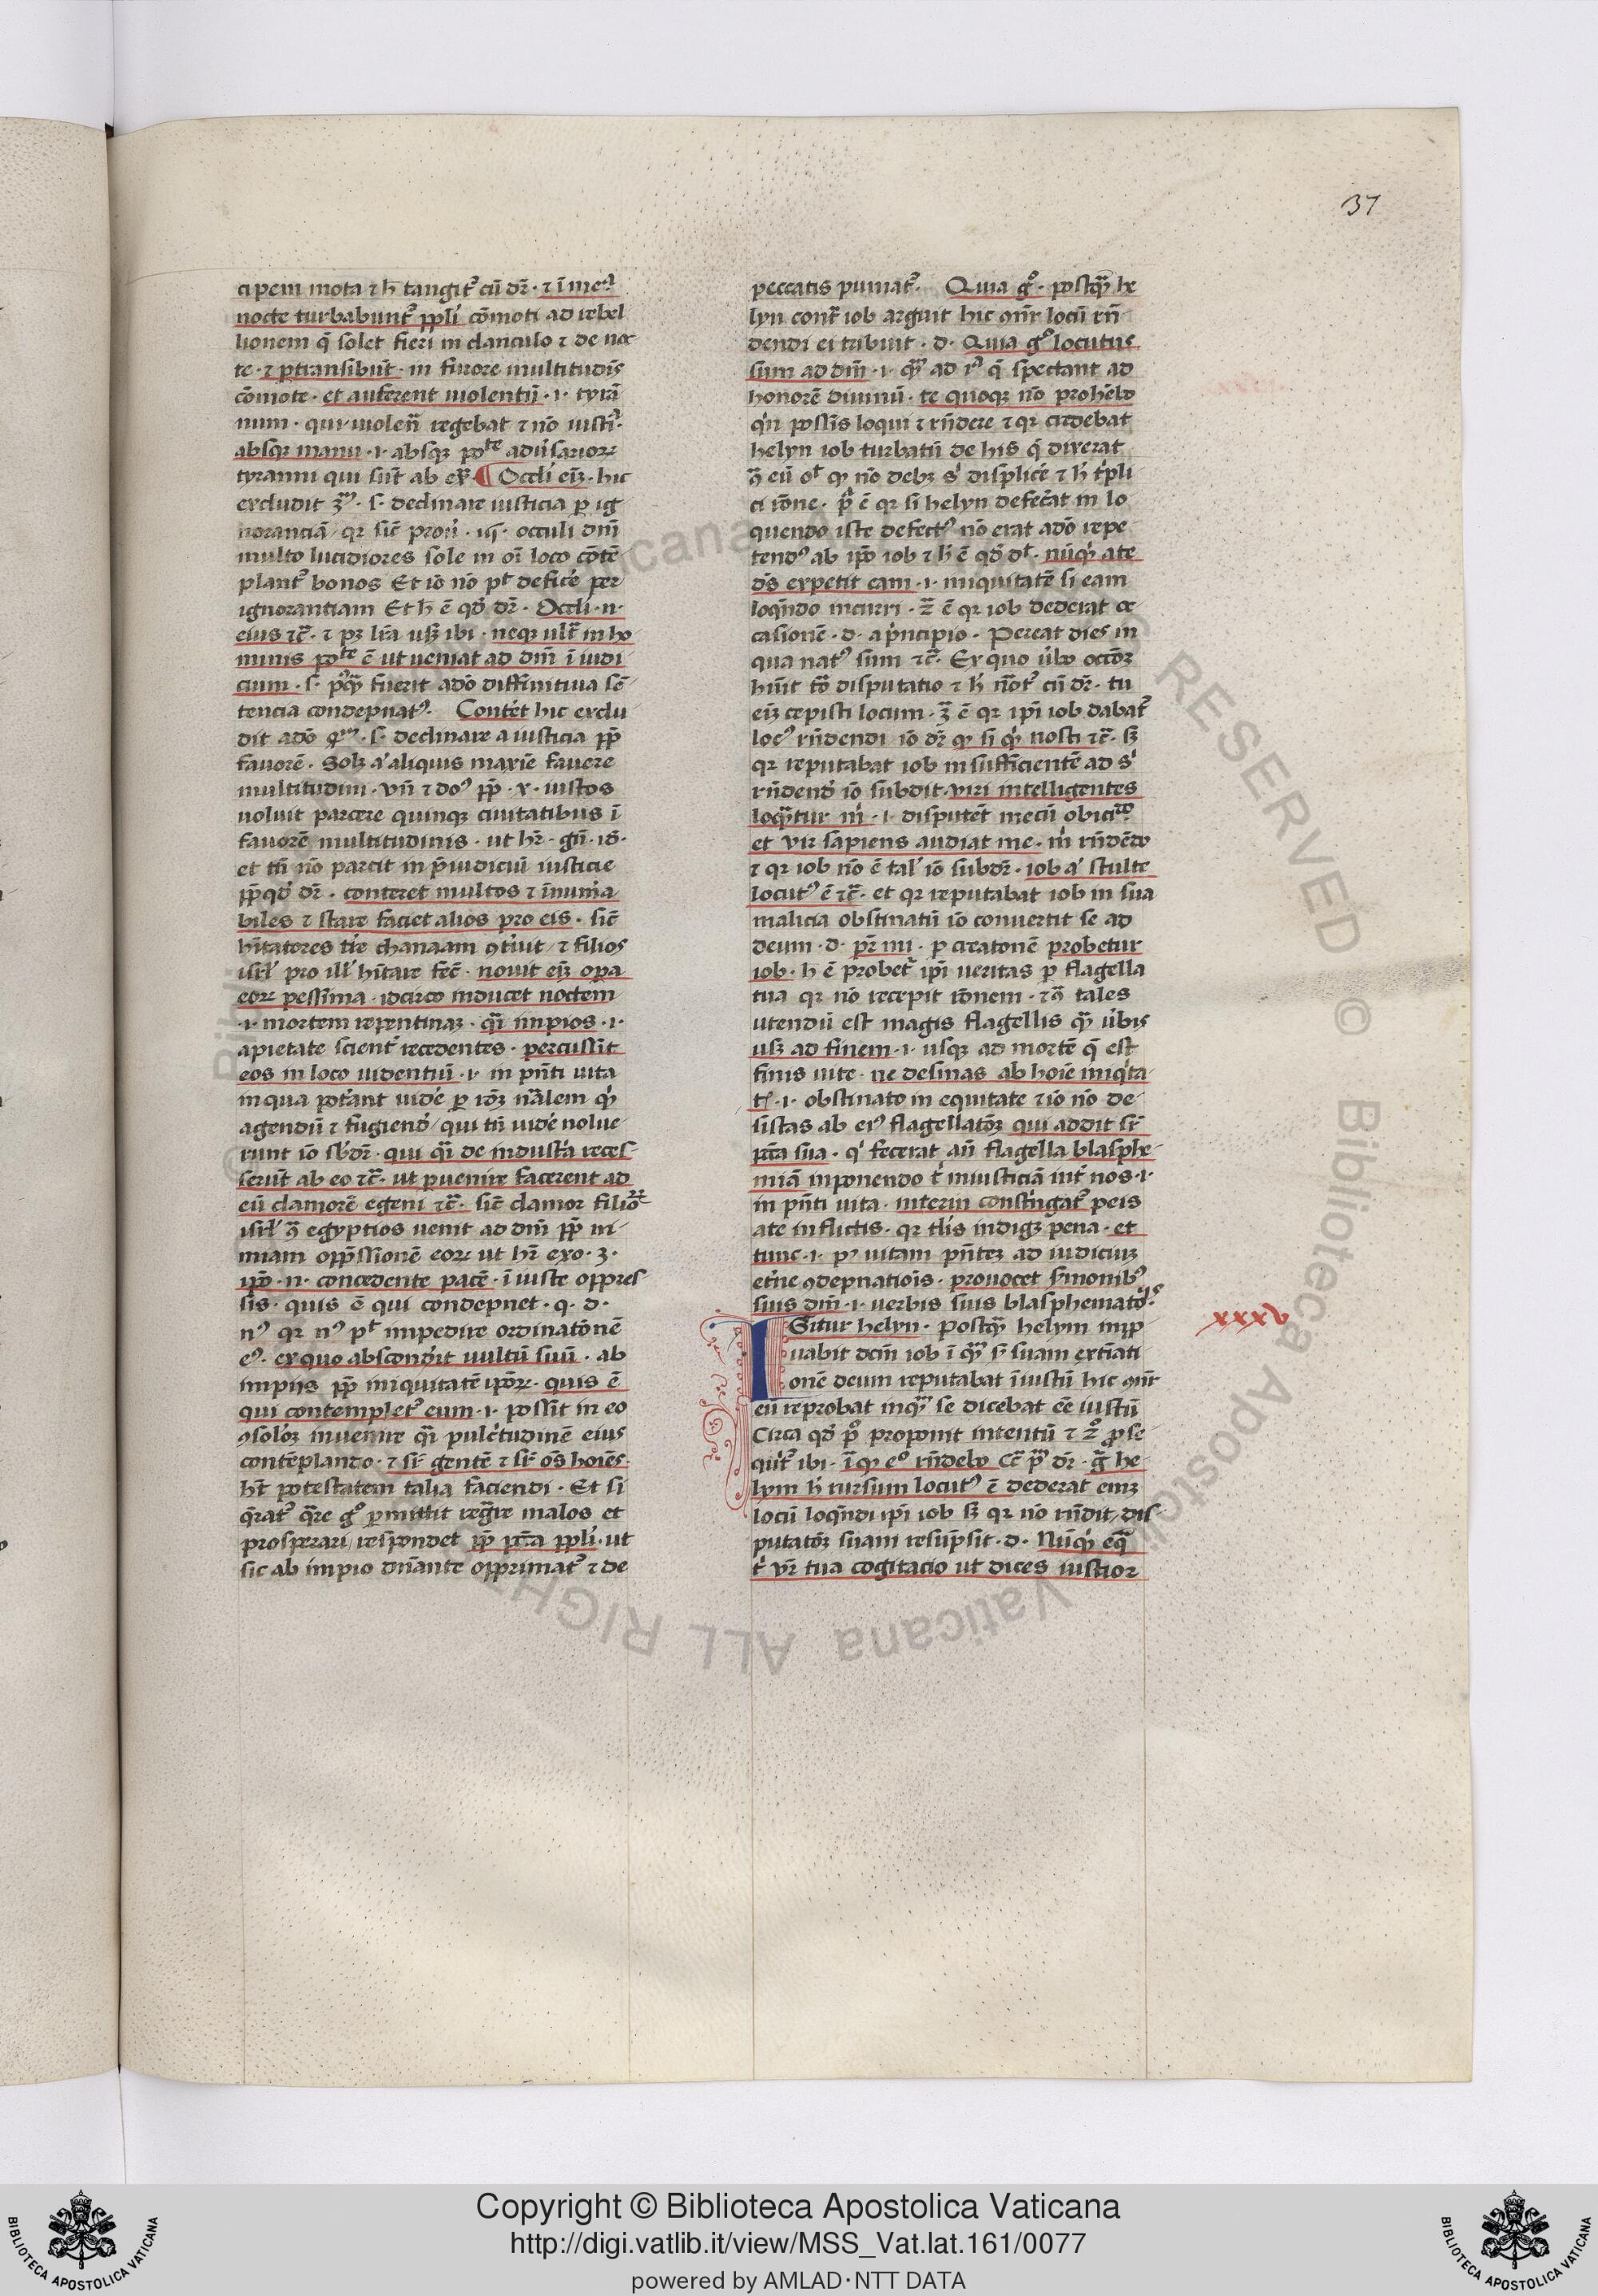 37
cipem mota ⁊ h̄ tangit᷒ cū dr̄ · ⁊ ī me
nocte turbabunt᷒ ppl̄i cōmoti ad rebel
lionem q̄ solet fieri in clanculo ⁊ de noc
te · ⁊ ꝑtransibūt · in furore multitudīs
cōmote · et auferent uiolentū · i · tyrā
num · qui uiolen̄t regebat ⁊ nō iusti
absqꝫ manu · i · absqꝫ poᵗᵉ adūsarioꝝ
tyranni qui sūt ab · Occli eīꝫ · hic
excludit · s · declinare iusticia ꝑ ig
noranciā qꝛ sic̄ · occuli dn̄i
multo lucidiores sole in oī loco cōtē
plant᷒ bonos Et iō nō pᵗ deficē per
ignorantiam Et h̄ ē qd̄ dr̄ · Occli · n ·
eius ⁊c̄ · ⁊ pꝫ lr̄a usqꝫ ibi · neqꝫ ult̄ in ho
minis poᵗᵉ ē ut ueniat ad dm̄ ī iudi
cium · s · fuerit adō diffinitiua sē
tencia condepnat᷒ · Contēt hic exclu
dit adō · s · declinare a iusticia pp̄
fauorē · Solꝫ aliquis maxīe fauere
multitudini · vn̄ ⁊ do᷒ pp̄ · x · iustos
uoluit parcere quinqꝫ ciuitatibus ī
fauorē multitudinis · ut hr̄ · gn̄ · 18 ·
et tn̄ nō parcit in p̄iudiciū iusticie
pp̄ qd̄ dr̄ · conteret multos ⁊ īnum̄a
biles ⁊ stare faciet alios pro eis · sic̄
hītatores tr̄e chanaam ꝯtiuit ⁊ filios
isrl̄ pro ill̄ hītare fec̄ · nouit eīꝫ oꝑa
eoꝝ pessima · idcirco inducet noctem
· i · mortem repentinaꝫ · q̄i impios · i ·
a pietate scient̄ recedentes · percussit
eos in loco uidentiū · i · in pn̄ti uita
in qua potᷓant uidē ꝑ n̄alem
agendū ⁊ fugiendō qui tn̄ uidē nolue
runt iō sbdr̄ · qui q̄i de industᷓa reces-
serūt ab eo ⁊c̄ · ut ꝑuenire facerent ad
eū clamorē egeni ⁊c̄ · sic̄ clamor filioꝝ
isrl̄ egyptios uenit ad dm̄ pp̄ ni-
miam opp̄ssionē eoꝝ ut hr̄ exo · 3 ·
ip̄o · n · concedente pacē · ī iuste oppres
sis · quis ē qui condepnet · q · d ·
n᷒ qꝛ n᷒ pᵗ impedire ordinatōnē
e᷒ · ex quo absconđit uultū suū · ab
impiis pp̄ iniquitatē ip̄oꝝ · quis ē
qui contemplet᷒ eum · i · possit in eo
ꝯsolōꝫ inuenire q̄i pulcᷓtudinē eius
contēplando · ⁊ sr̄ gentē ⁊ sr̄ os̄ hoīes ·
hꝫ potestatem talia faciendi · Et si
q̄rat᷒ q̄re gͦ ꝑmittit regᷓre malos et
prosperari respondet pp̄ pcc̄a ppl̄i · ut
sic ab impio dn̄ante opprimat᷒ ⁊ de
peccatis puniat᷒ · Quia gͦ · postqᷓ he
lyn cont᷒ iob arguit hic ꝯn̄r locū rn̄
dendi ei tribuit · d · Quia gͦ locutus
sum ad dm̄ · i · ad q̄ spectant ad
honorē diuinū · te quoqꝫ nō prohībo
qn̄ possis loqui ⁊ rn̄dere ⁊ qꝛ credebat
helyn iob turbatū de his q̄ dixerat
eū nō debꝫ displicē ⁊ h̄ tᷓpli
ci rōne · ē qꝛ si helyn defec̄at in lo
quendo iste defect᷒ nō erat adō repe
tend᷒ ab ip̄o iob ⁊ h̄ ē qd̄ dr̄ · nūqᷓ a te
ds̄ expetit eam · i · iniquitatē si eam
loqn̄do incurri · ē qꝛ iob dederat oc
casionē · d · a p̄ncipio · Pereat dies in
qua nat᷒ sum ⁊c̄ · Ex quo ūbo
hūit disputatio ⁊ h̄ cū dr̄ · tu
eīꝫ cepisti locum · ē qꝛ ip̄i iob dabat᷒
loc᷒ rn̄dendi iō dr̄ si nosti ⁊c̄ · sꝫ
qꝛ reputabat iob insufficientē ad
rn̄dendō iō subdit · viri intelligentes
loqᷓntur m̄ · i · disputēt mecū
et vir sapiens audiat me · m̄ rn̄dēdo
⁊ qꝛ iob nō ē tal̄ iō subdr̄ · iob stulte
locut᷒ ē ⁊c̄ · et qꝛ reputabat iob in sua
malicia obstinatū iō conuertit se ad
deum · d · pr̄ mi · ꝑ creatonē probetur
iob · h̄ ē probet᷒ ip̄i ueritas ꝑ flagella
tua qꝛ nō recepit rōnem · tales
utendū est magis flagellis qᷓ ūbis
usqꝫ ad finem · i · usqꝫ ad mortē q̄ est
finis uite · ne desinas ab hoīe iniqᷓta
tꝭ · i · obstinato in equitate ⁊ iō nō de-
sistas ab ei᷒ flagellatōꝫ qui addit sr̄
pcc̄a sua · fecerat an̄ flagella blasphe-
miā inponendo iniusticiā int᷒ nos · i ·
in pn̄ti uita · interim constᷓingat᷒ peis
a te inflictis · qꝛ indigꝫ pena · et
tunc · i · p᷒ uitam pn̄teꝫ ad iudiciuꝫ
et̄ne ꝯdepnatiōis · prouocet sᷓmonib᷒
suis dm̄ · i · uerbis suis
xxxv
Igitur helyn · postqᷓ helym
obabit iob ī suam
onē deum reputabat īiustū hic ꝯn̄r
eū reprobat se dicebat ēe iustū
Circa qd̄ proponit intentū ⁊ ꝓse
quit᷒ ibi · rn̄debo dr̄ · he
lym h̄ rursum locut᷒ ē dederat eniꝫ
locū loqn̄di ip̄i iob sꝫ qꝛ nō rn̄dit dis-
putatōꝫ suam resūpsit · d · Nūqᷓ eqᷓ
tᷓ vr̄ tua cogitacio ut dices iustior
Copyright © Biblioteca Apostolica Vaticana
http://digi.vatlib.it/view/MSS_Vat.lat.161/0077
powered by AMLAD·NTT DATA
BIBLIOTECA APOSTOLICA VATICANA
BIBLIOTECA APOSTOLICA VATICANA